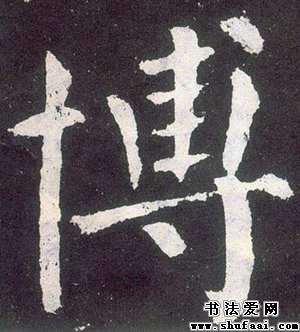 博
书法爱网
www.shufaai.com